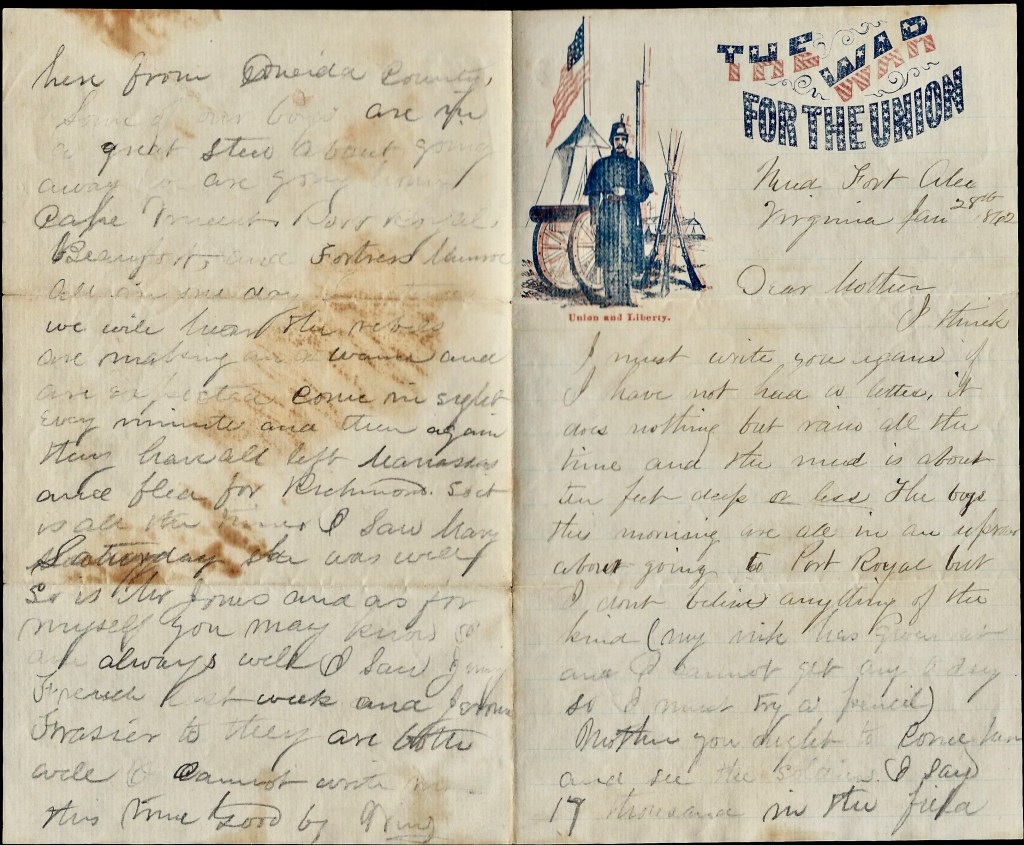 THE WAR
FOR THE UNION
Union and Liberty.
Mud Fort Alex
Virginia Jan 28th 1862
Dear Mother
I think
I must write you again if
I have not had a letter, it
does nothing but rain all the
time and the mud is about
ten feet deep or less The boys
this morning are all in an uproar
about going to Port Royal but
I dont believe anything of the
kind (my ink has given out
and I cannot get any to day
so I must try a pencil)
Mother you ought to come here
and see the soldiers. I saw
17 thousand in the field
here from Oneida County,
Some of our boys are in
a great stew about going
away
Port Royal,
Beaufort, and Fortress Munroe
all in one day
we will hear the rebels
are making an a and
are expected come in sight
Every minute and then again
they have all left Manassas
and fled for Richmond. So it
is all the time I saw Mary
Saturday she was well
So is Mr Jones and as for
myself you may know
am always well I saw
French last week and
Frasier to they are both
well I cannot write
this time Good by